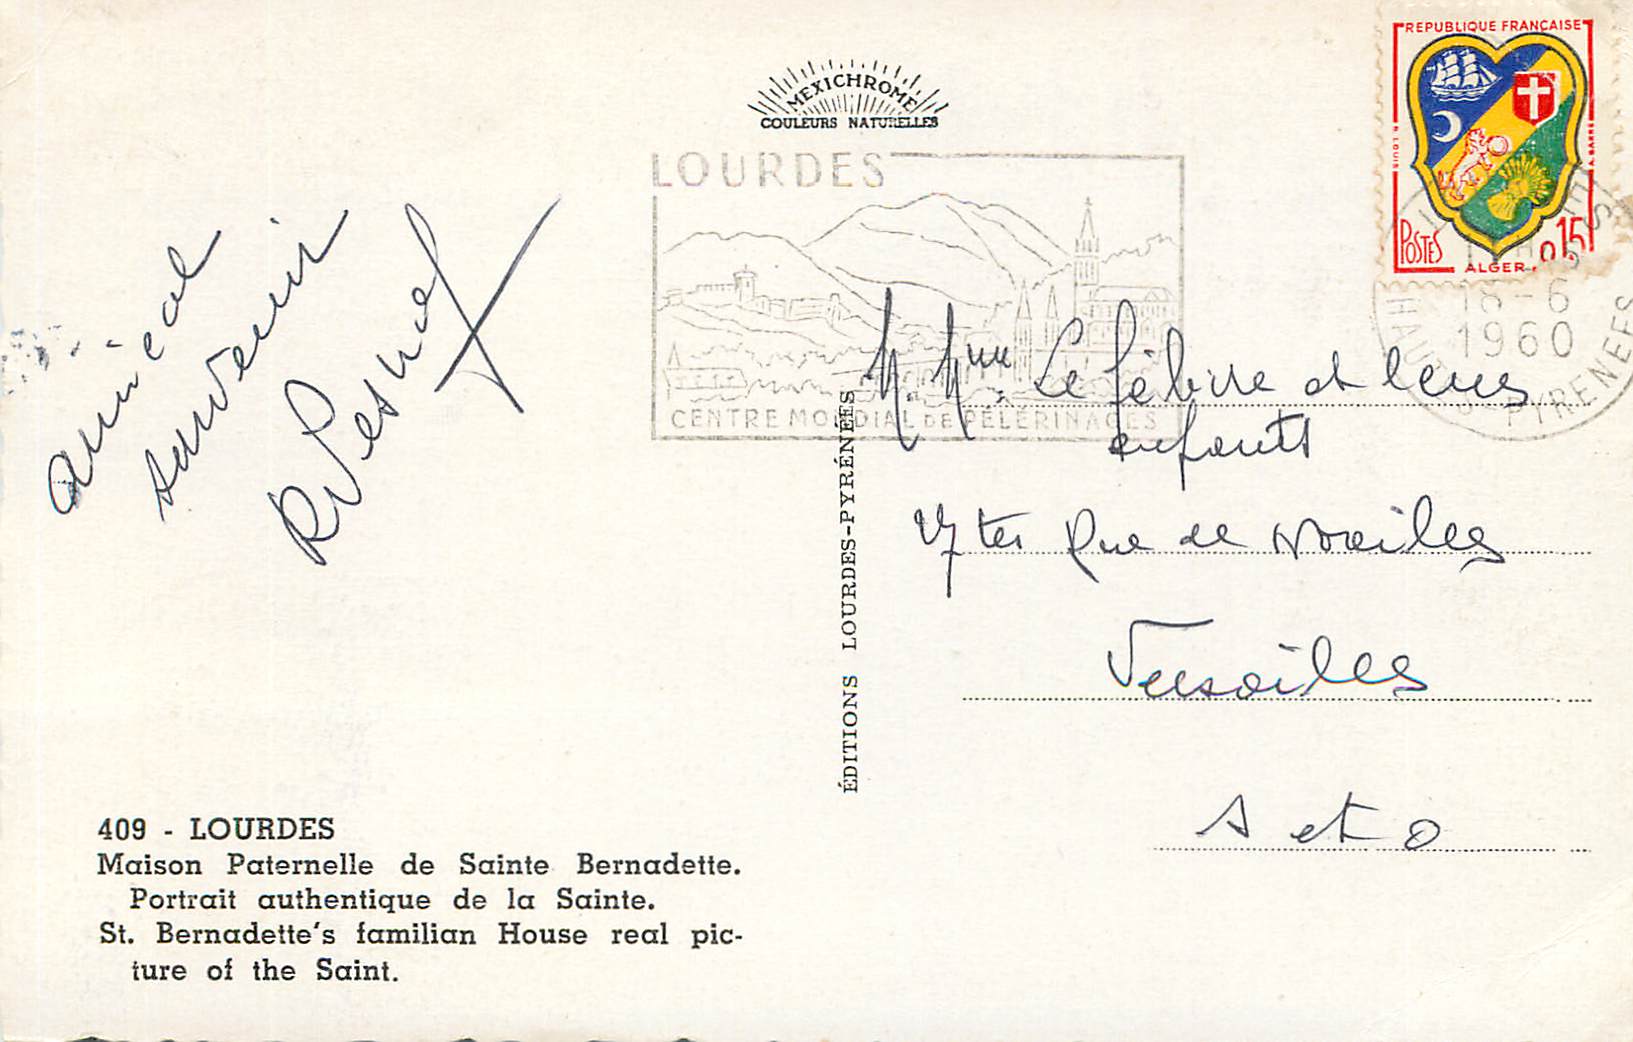 MEXICHROME
COULEURS NATURELLES
REPUBLIQUE FRANÇAISE
R. LOUIS
A. BARRE
POSTES
0,15
ALGER
LOURDES
CENTRE MONDIAL DE PÈLERINAGES
18-6
1960
HAUTES-PYRENEES
amical
souvenir
M. Mme Lefebvre et leurs
enfants
ter Rue de Noailles
Versailles
S et O
ÉDITIONS LOURDES-PYRÉNÉES
409 - LOURDES
Maison Paternelle de Sainte Bernadette.
Portrait authentique de la Sainte.
St. Bernadette's familian House real pic-
ture of the Saint.